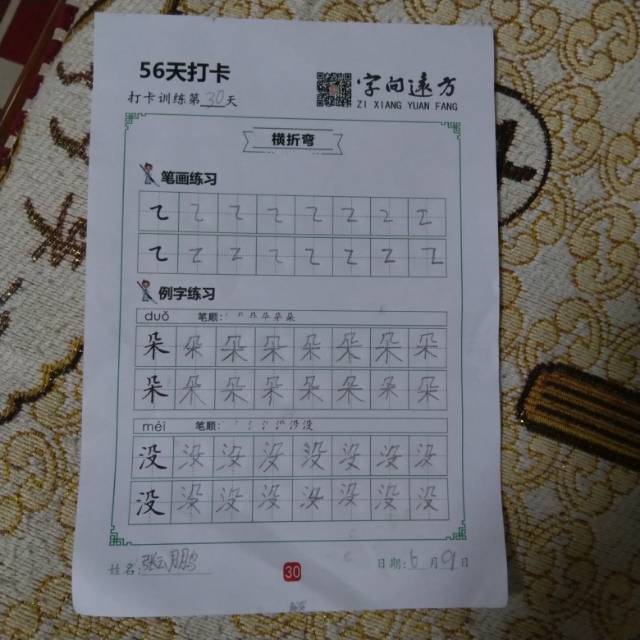 56天打卡
打卡训练第30天
字向远方
ZI XIANG YUAN FANG
横折弯
笔画练习
例字练习
duǒ 笔顺:
朵朵朵朵朵朵朵朵
朵朵朵朵朵朵朵朵
méi 笔顺:
没没没没没没没没
没没没没没没没没
姓名 鹏
30
日期: 月9日